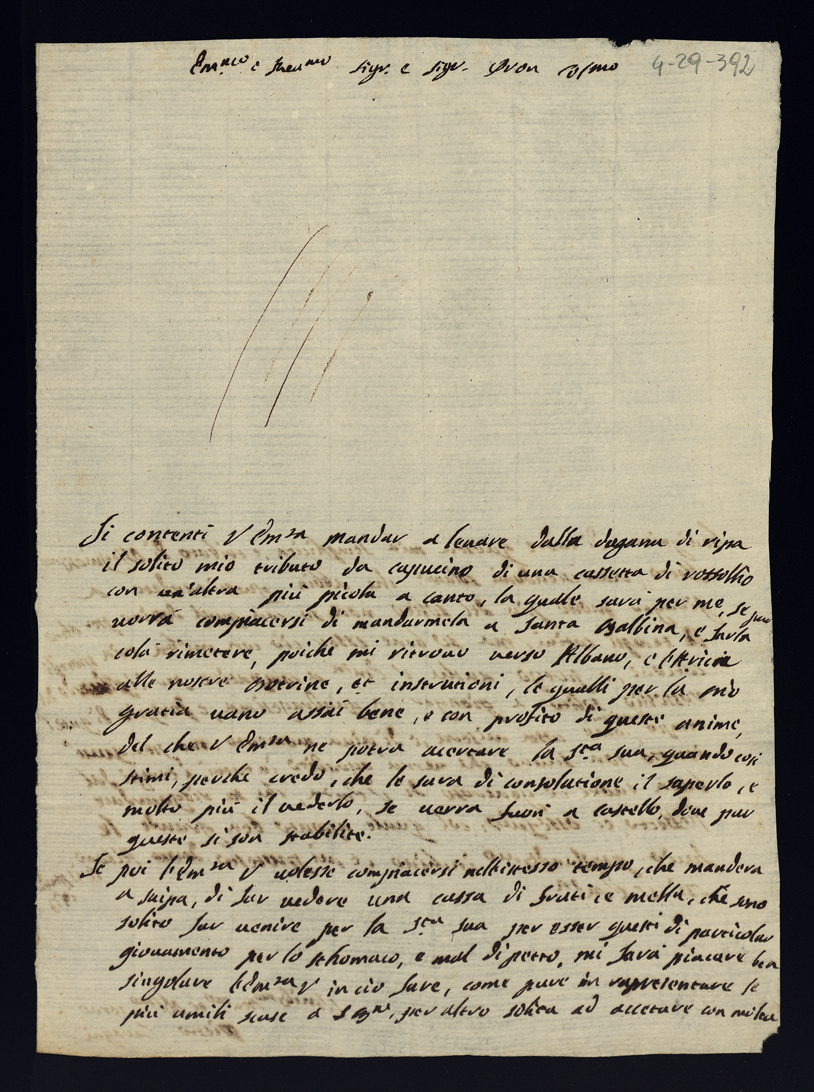 Em.mo e Reu.mo sigr. e sigr. Pron Col.mo 4-29-392
Si contenti V Em.za mandar a leuare dalla dogana di ripa
il solito mio tributo da capucino di una cassetta di rossolio
con un'altra più picola a canto, la quale sarà per me, se pur
uorrà compiacersi di mandarmela a Santa Balbina, e farla
colà rimetere, poiche mi ritrouo uerso Albano, e l'Ariccia
alle nostre dotrine, et instrutioni, le qualli per la Dio
gratia uano assai bene, e con profito di queste anime,
del che V Em.za ne potrà acertare la S.tà sua, quando così
stimi, perche credo, che le sarà di consolatione il saperlo, e
molto più il uederlo, se uerrà fuori a castello, doue pur
queste si son stabilite.
Se poi l'Em.za V uolesse compiacersi nell'istesso tempo, che manderà
a ripa, di far uedere una cassa di fruti e mella, che sono
solito far uenire per la S.tà sua per esser questi di particolar
giouamento per lo sthomaco, e mal di petto, mi farà piacere ben
singolare l'Em.za V in cio fare, come pure in rapresentare le
più umili scuse a S. B.ne, per altro solita ad accetare con molta